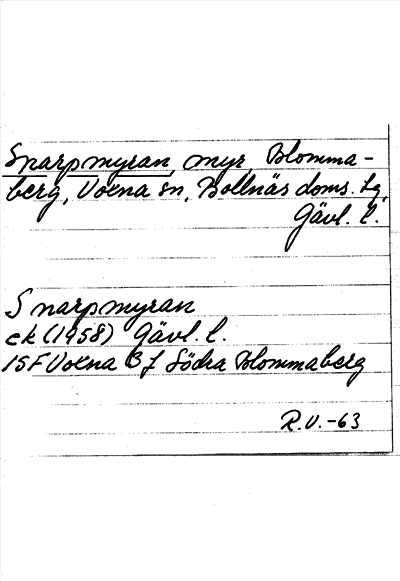 Snarpmyran, myr, Blomma-
berg, Voxna sn, Bollnäs doms. lg,
Gävl. l.
Snarpmyran
ck (1958) Gävl. l.
15F Voxna 3 f Södra Blommaberg
R.V. -63